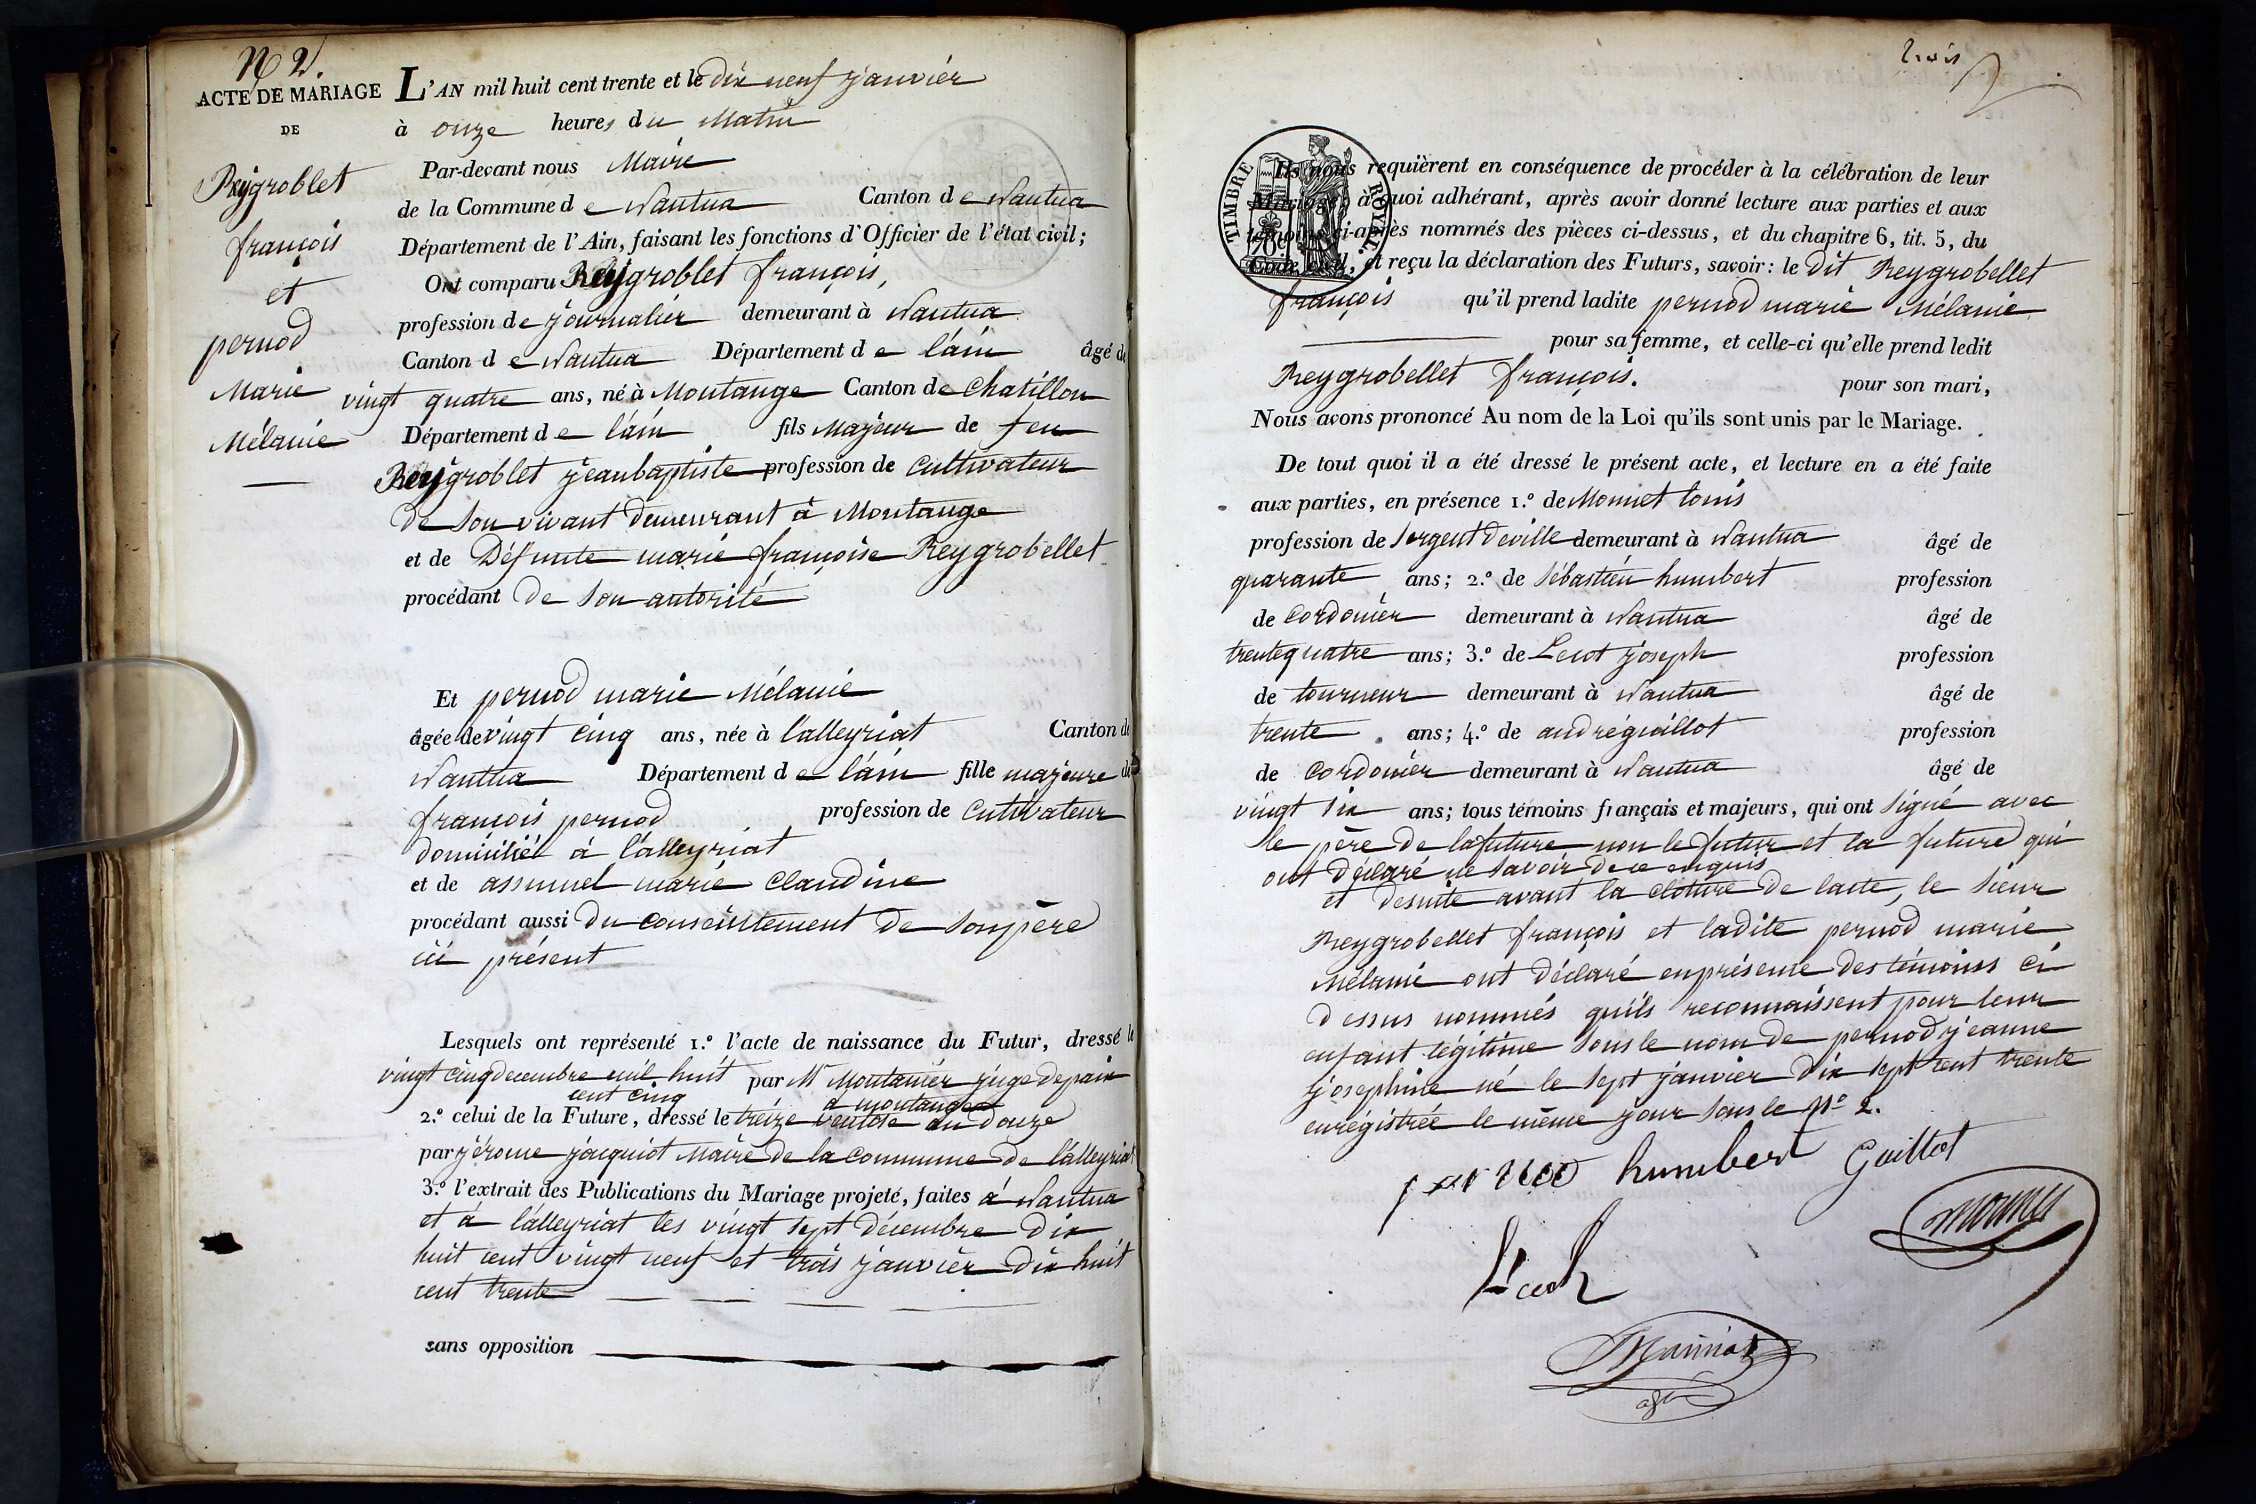 N° 2.
ACTE DE MARIAGE
DE
Reygroblet
françois
et
pernod
Marie
Mélanie
L'AN mil huit cent trente et le dix neuf janvier
à onze heures du Matin
Par-devant nous Maire
de la Commune de Nantua Canton de Nantua
Département de l'Ain, faisant les fonctions d'Officier de l'état civil;
Ont comparu Reygroblet françois,
profession de journalier demeurant à Nantua
Canton de Nantua Département de láin âgé de
vingt quatre ans, né à Montange Canton de Chatillon
Département de láin fils Majeur de feu
Reygroblet jeanbaptiste profession de Cultivateur
de son vivant demeurant à Montange
et de Défunte marie françoise Reygrobellet
procédant de son autorité
Et pernod marie Mélanie
âgée de vingt cinq ans, née à lalleyriat Canton de
Nantua Département de láin fille majeure de
françois pernod profession de Cultivateur
domicilié à lalleyriat
et de assumel marie Claudine
procédant aussi du consentement de son père
ici présent
Lesquels ont représenté 1.º l'acte de naissance du Futur, dressé le
vingt cinq decembre mil huit par Mr Montanier juge depaix
cent cinq a montange
2.º celui de la Future, dressé le treize ventose an douze
par jérome jacquiot Maire de la commune de lalleyriat
3.º l'extrait des Publications du Mariage projeté, faites à Nantua
et à lalleyriat les vingt sept décembre dix
huit cent vingt neuf et trois janvier dix huit
cent trente
sans opposition
trois
TIMBRE ROYAL
Ils nous requièrent en conséquence de procéder à la célébration de leur
Mariage, à quoi adhérant, après avoir donné lecture aux parties et aux
témoins ci-après nommés des pièces ci-dessus, et du chapitre 6, tit. 5, du
Code civil, et reçu la déclaration des Futurs, savoir: le dit Reygrobellet
françois qu'il prend ladite pernod marie Mélanie
pour sa femme, et celle-ci qu'elle prend ledit
Reygrobellet françois. pour son mari,
Nous avons prononcé Au nom de la Loi qu'ils sont unis par le Mariage.
De tout quoi il a été dressé le présent acte, et lecture en a été faite
aux parties, en présence 1.º de Monnet louis
profession de Sergent deville demeurant à Nantua âgé de
quarante ans; 2.º de Sébastien humbert profession
de Cordonier demeurant à Nantua âgé de
trentequatre ans; 3.º de joseph profession
de tourneur demeurant à Nantua âgé de
trente ans; 4.º de andréguillot profession
de Cordonier demeurant à Nantua âgé de
vingt six ans; tous témoins français et majeurs, qui ont signé avec
le père de lafuture non le futur et la future qui
ont déclaré ne savoir de ce enquis
et desuite avant la cloture de lacte, le Sieur
Reygrobellet françois et ladite pernod marie
Mélanie ont déclaré enprésence des témoins ci
dessus nommés quils reconnaissent pour leur
enfant légitime sous le nom de pernod jeanne
josephine né le sept janvier dix sept cent trente
enrégistrée le même jour sous le No 2.
pernod humbert Guillot
monnet